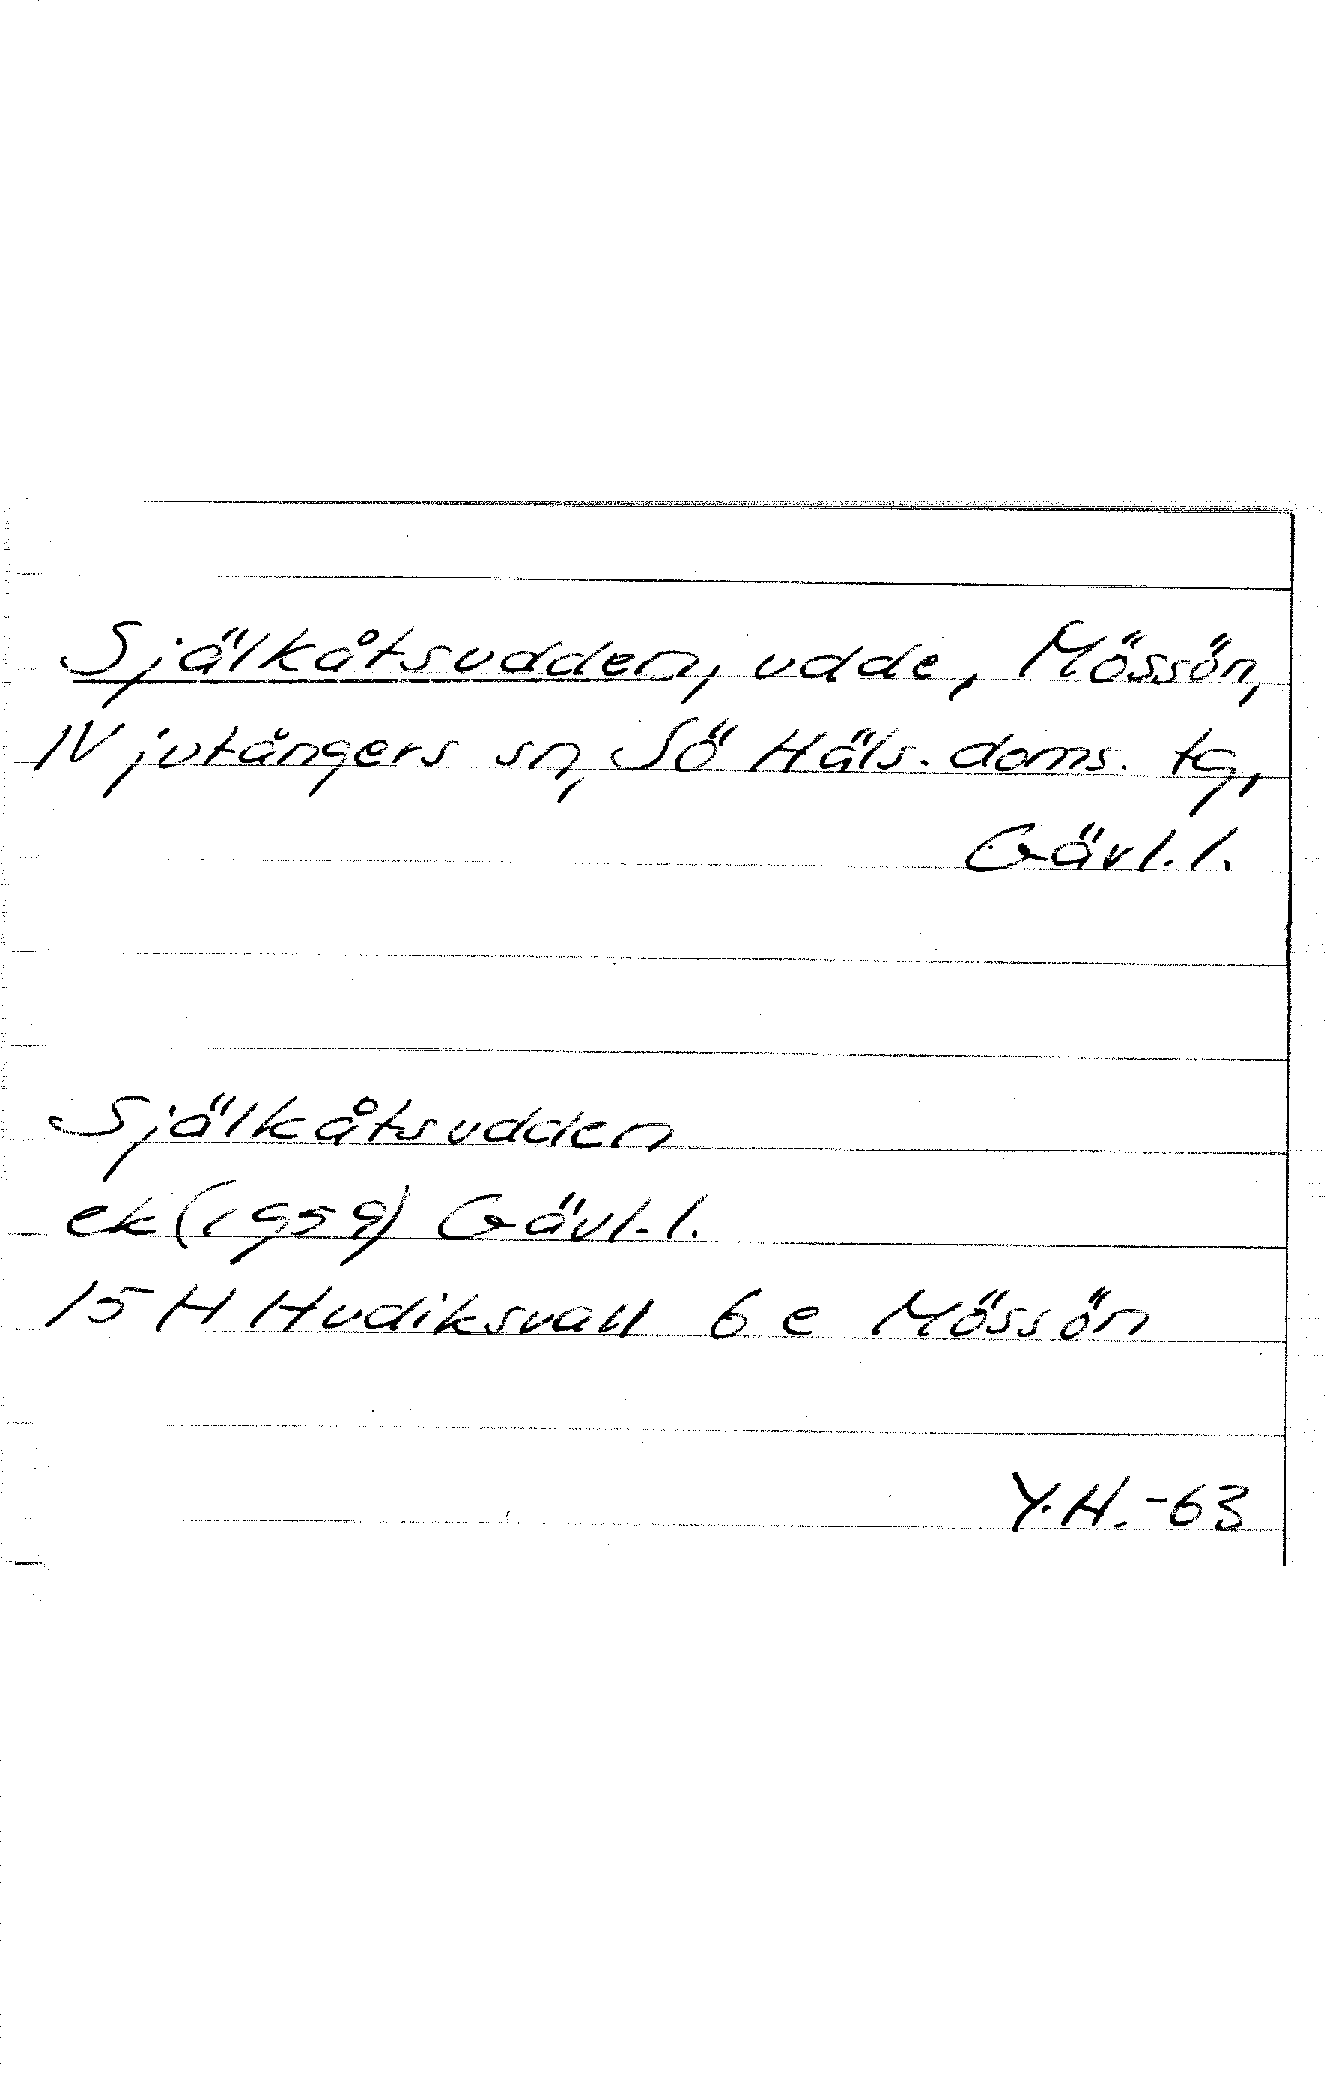 Själkåtsudden, udde, Mössön,
Njutångers sn, Sö Häls. doms. tg,
Gävl. l.
Själkåtsudden
ek (1959) Gävl. l.
15 H Hudiksvall 6 e Mössön
Y.H.-63